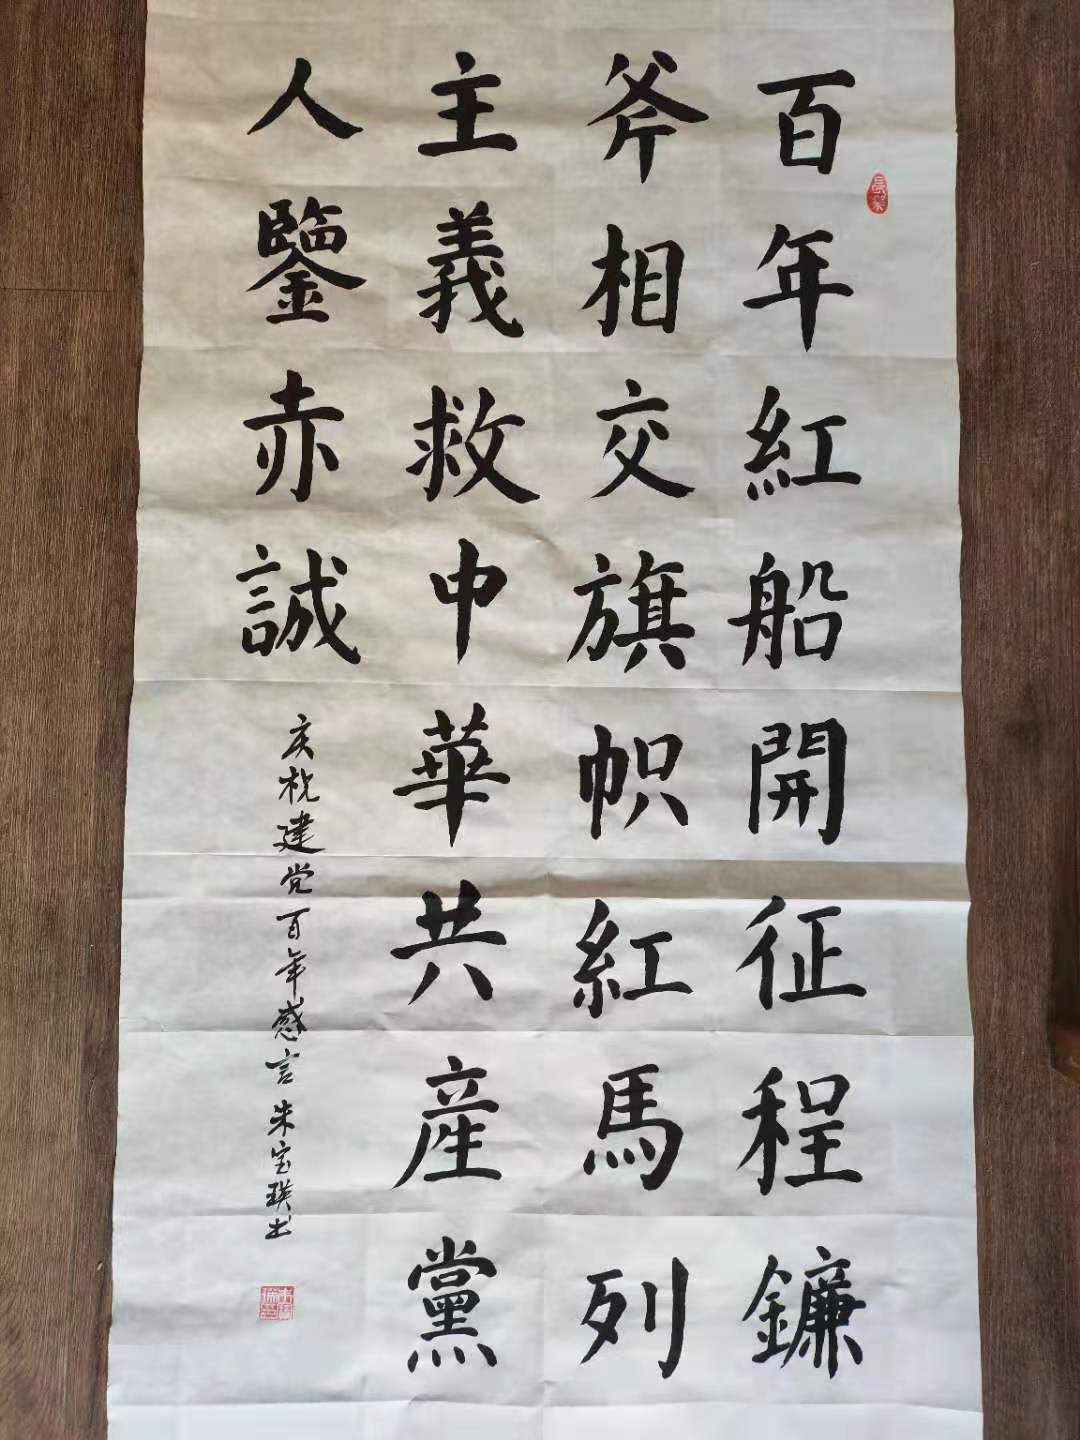 百年紅船開征程鐮
斧相交旗帜紅馬列
主義救中華共産黨
人鑒赤誠
庆祝建党百年感言 朱宝瑛书